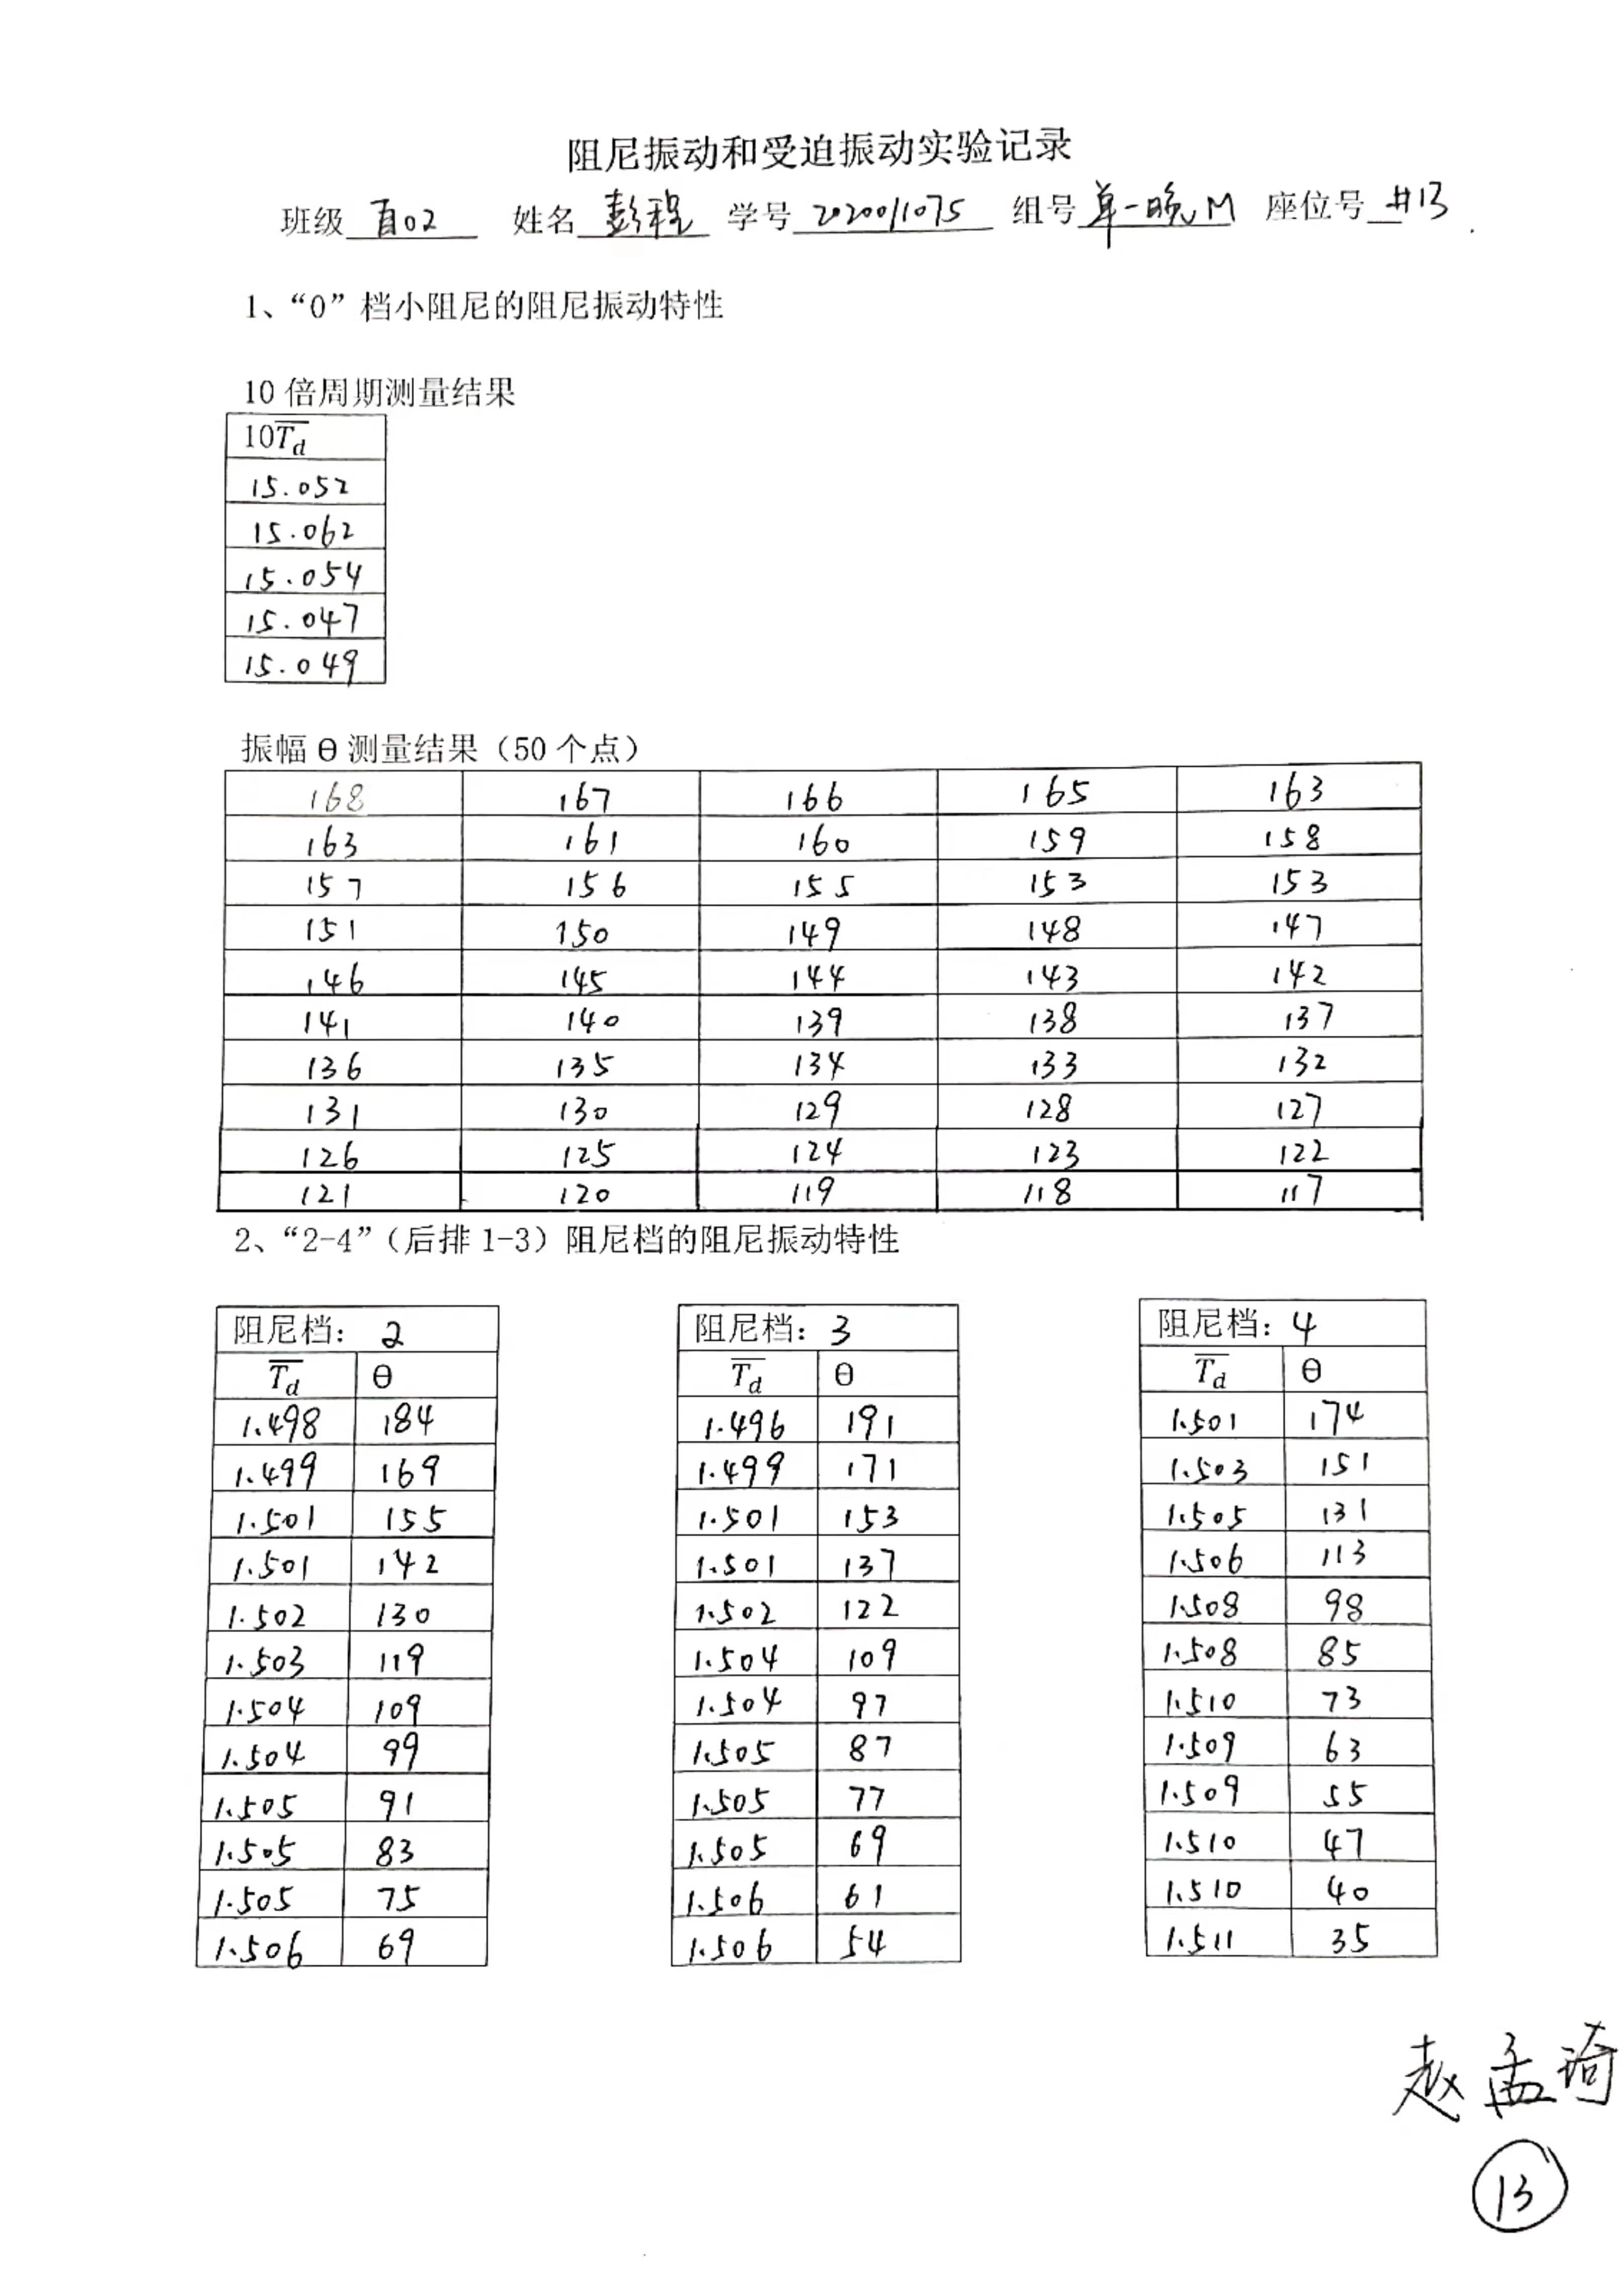 阻尼振动和受迫振动实验记录
班级 自02 姓名 彭程 学号 2020011075 组号 单一晚M 座位号 #13
1、“0”档小阻尼的阻尼振动特性
10倍周期测量结果
10T̅d
15.052
15.062
15.054
15.047
15.049
振幅θ测量结果（50个点）
168 167 166 165 163
163 161 160 159 158
157 156 155 153 153
151 150 149 148 147
146 145 144 143 142
141 140 139 138 137
136 135 134 133 132
131 130 129 128 127
126 125 124 123 122
121 120 119 118 117
2、“2-4”（后排1-3）阻尼档的阻尼振动特性
阻尼档：2
T̅d θ
1.498 184
1.499 169
1.501 155
1.501 142
1.502 130
1.503 119
1.504 109
1.504 99
1.505 91
1.505 83
1.505 75
1.506 69
阻尼档：3
T̅d θ
1.496 191
1.499 171
1.501 153
1.501 137
1.502 122
1.504 109
1.504 97
1.505 87
1.505 77
1.505 69
1.506 61
1.506 54
阻尼档：4
T̅d θ
1.501 174
1.503 151
1.505 131
1.506 113
1.508 98
1.508 85
1.510 73
1.509 63
1.509 55
1.510 47
1.510 40
1.511 35
赵孟琦
13